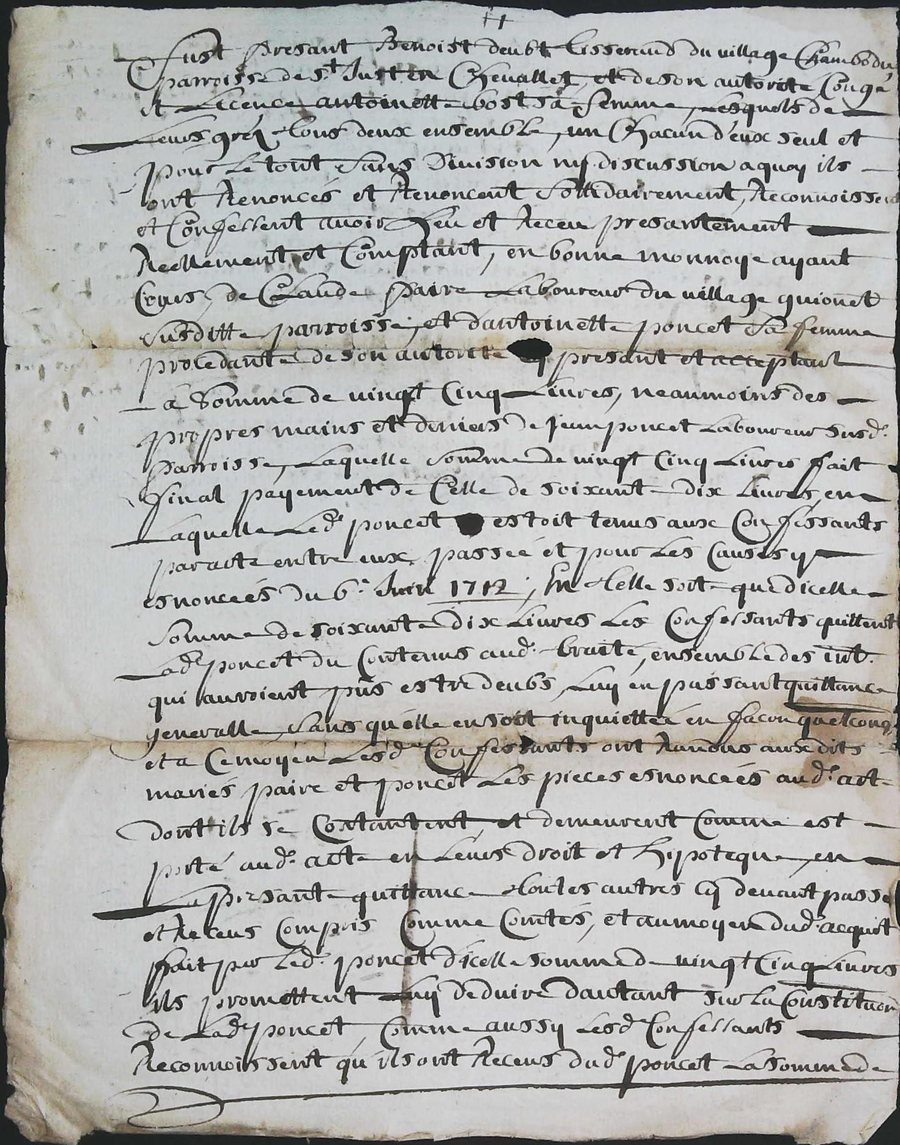 Fust presant Benoist deubt tisserand du village Chambodu
Parroisse de St Just en Chevallet, et de son autorité Congé
et Licence antoinette bost sa femme, Lesquels de
Leurs gréz tous deux ensemble, un Chacun d'eux seul et
pour Le tout sans Division ny discussion a quoy ils
ont Renoncés et Renoncent Sollidairement, Reconnoissent
et Confessent avoir Heu et Receu presantement
Réellement et Comptant, en bonne monnoye ayant
Cours, de Claude paire Laboureur du village quionet
susditte parroisse, et d'antoinette poncet sa femme
procedante de son autorité presant et acceptant
La Somme de vingt Cinq Livres, neaumoins des
propres mains et deniers de Jean poncet Laboureur susd.
parroisse, Laquelle somme de vingt Cinq Livres fait
final payement de Celle de soixante dix Livres, en
Laquelle Led. poncet estoit tenus aux Confessants
par acte entre eux passée et pour Les Causes y
esnoncées du 6e Juin 1712, En telle sorte que d'icelle
somme de soixante dix Livres Les Confessants quittent
Lad. poncet du Contenus aud. traité, ensemble des int.
qui auroient pus estre deubs, Luy en passant quittance
generalle, sans qu'elle en soit inquiettée en facon quelconq.
et a Ce moyen Lesd. Confessants ont Randus auxdits
mariés paire et poncet Les pieces esnoncées aud. act
dont ils se Contantent, et demeurent Comme est
porté aud. acte en Leurs droit et hipoteque, en
La presante quittance toutes autres Cy devant passé
et Receus Compris Comme Comtés, et au moyen dud. acquit
fait par Led. poncet d'icelle somme de vingt Cinq Livres
ils promettent Luy deduire d'autant sur La Constitution
de Lad. poncet Comme aussy Lesd. Confessants
Reconnoissent qu'ils ont Receus dud. poncet La somme de